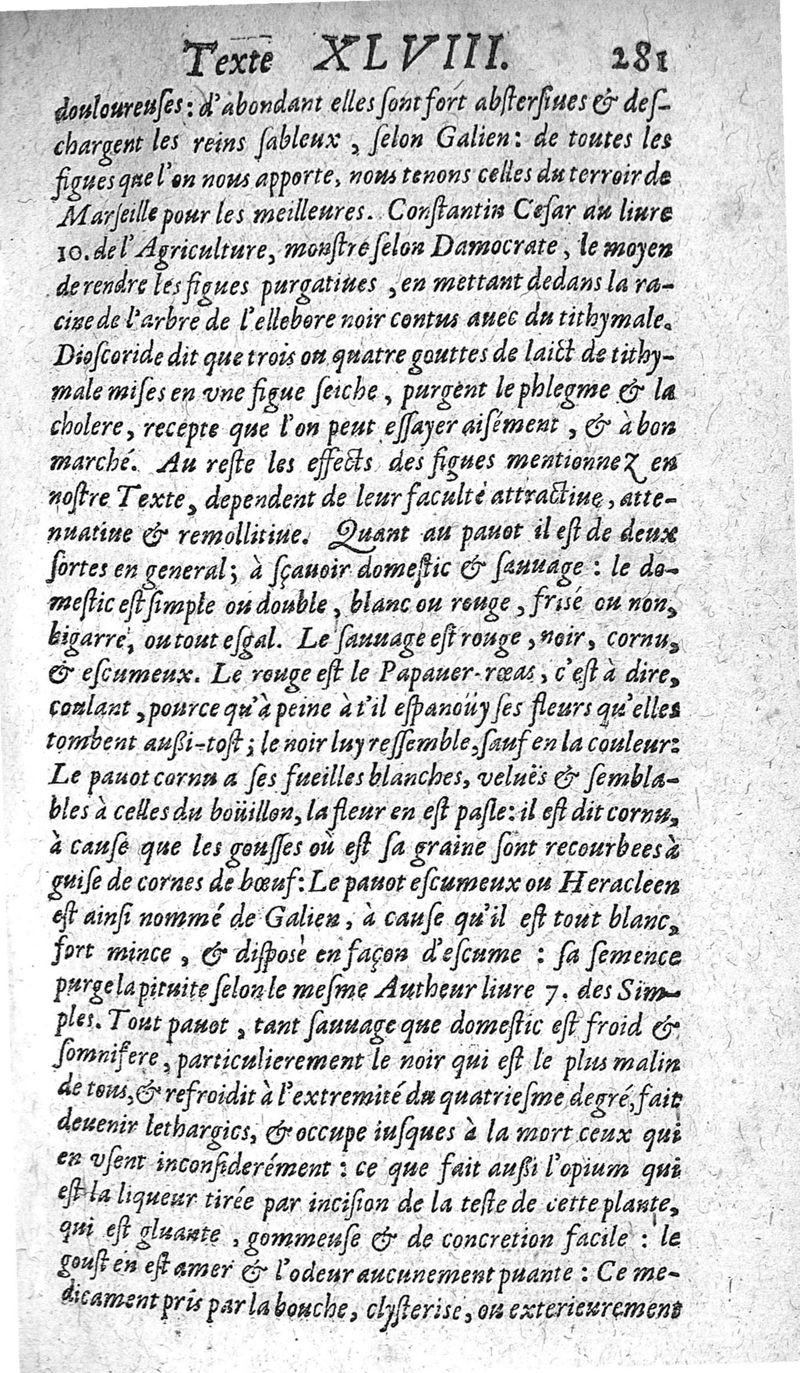 Texte XLVIII. 281
douloureuses: d'abondant elles sont fort abstersiues & des-
chargent les reins sableux, selon Galien: de toutes les
figues que l'on nous apporte, nous tenons celles du terroir de
Marseille pour les meilleures. Constantin Cesar au liure
10. de l'Agriculture, monstre selon Damocrate, le moyen
de rendre les figues purgatiues, en mettant dedans la ra-
cine de l'arbre de l'ellebore noir contus auec du tithymale.
Dioscoride dit que trois ou quatre gouttes de laict de tithy-
male mises en vne figue seiche, purgent le phlegme & la
cholere, recepte que l'on peut essayer aisément, & à bon
marché. Au reste les effects des figues mentionnez en
nostre Texte, dependent de leur faculté attractiue, atte-
nuatiue & remollitiue. Quant au pauot il est de deux
sortes en general; à sçauoir domestic & sauuage: le do-
mestic est simple ou double, blanc ou rouge, frisé ou non,
bigarré, ou tout esgal. Le sauuage est rouge, noir, cornu,
& escumeux. Le rouge est le Papauer-rœas, c'est à dire,
coulant, pource qu'à peine à t'il espanoüy ses fleurs qu'elles
tombent außi-tost; le noir luy ressemble, sauf en la couleur:
Le pauot cornu a ses fueilles blanches, veluës & sembla-
bles à celles du boüillon, la fleur en est pasle: il est dit cornu,
à cause que les gousses où est sa graine sont recourbees à
guise de cornes de bœuf: Le pauot escumeux ou Heracleen
est ainsi nommé de Galien, à cause qu'il est tout blanc,
fort mince, & disposé en façon d'escume: sa semence
purge la pituite selon le mesme Autheur liure 7. des Sim-
ples. Tout pauot, tant sauuage que domestic est froid &
somnifere, particulierement le noir qui est le plus malin
de tous, & refroidit à l'extremité du quatriesme degré, fait
deuenir lethargics, & occupe iusques à la mort ceux qui
en vsent inconsiderément: ce que fait außi l'opium qui
est la liqueur tirée par incision de la teste de cette plante,
qui est gluante, gommeuse & de concretion facile: le
goust en est amer & l'odeur aucunement puante: Ce me-
dicament pris par la bouche, clysterise, ou exterieurement